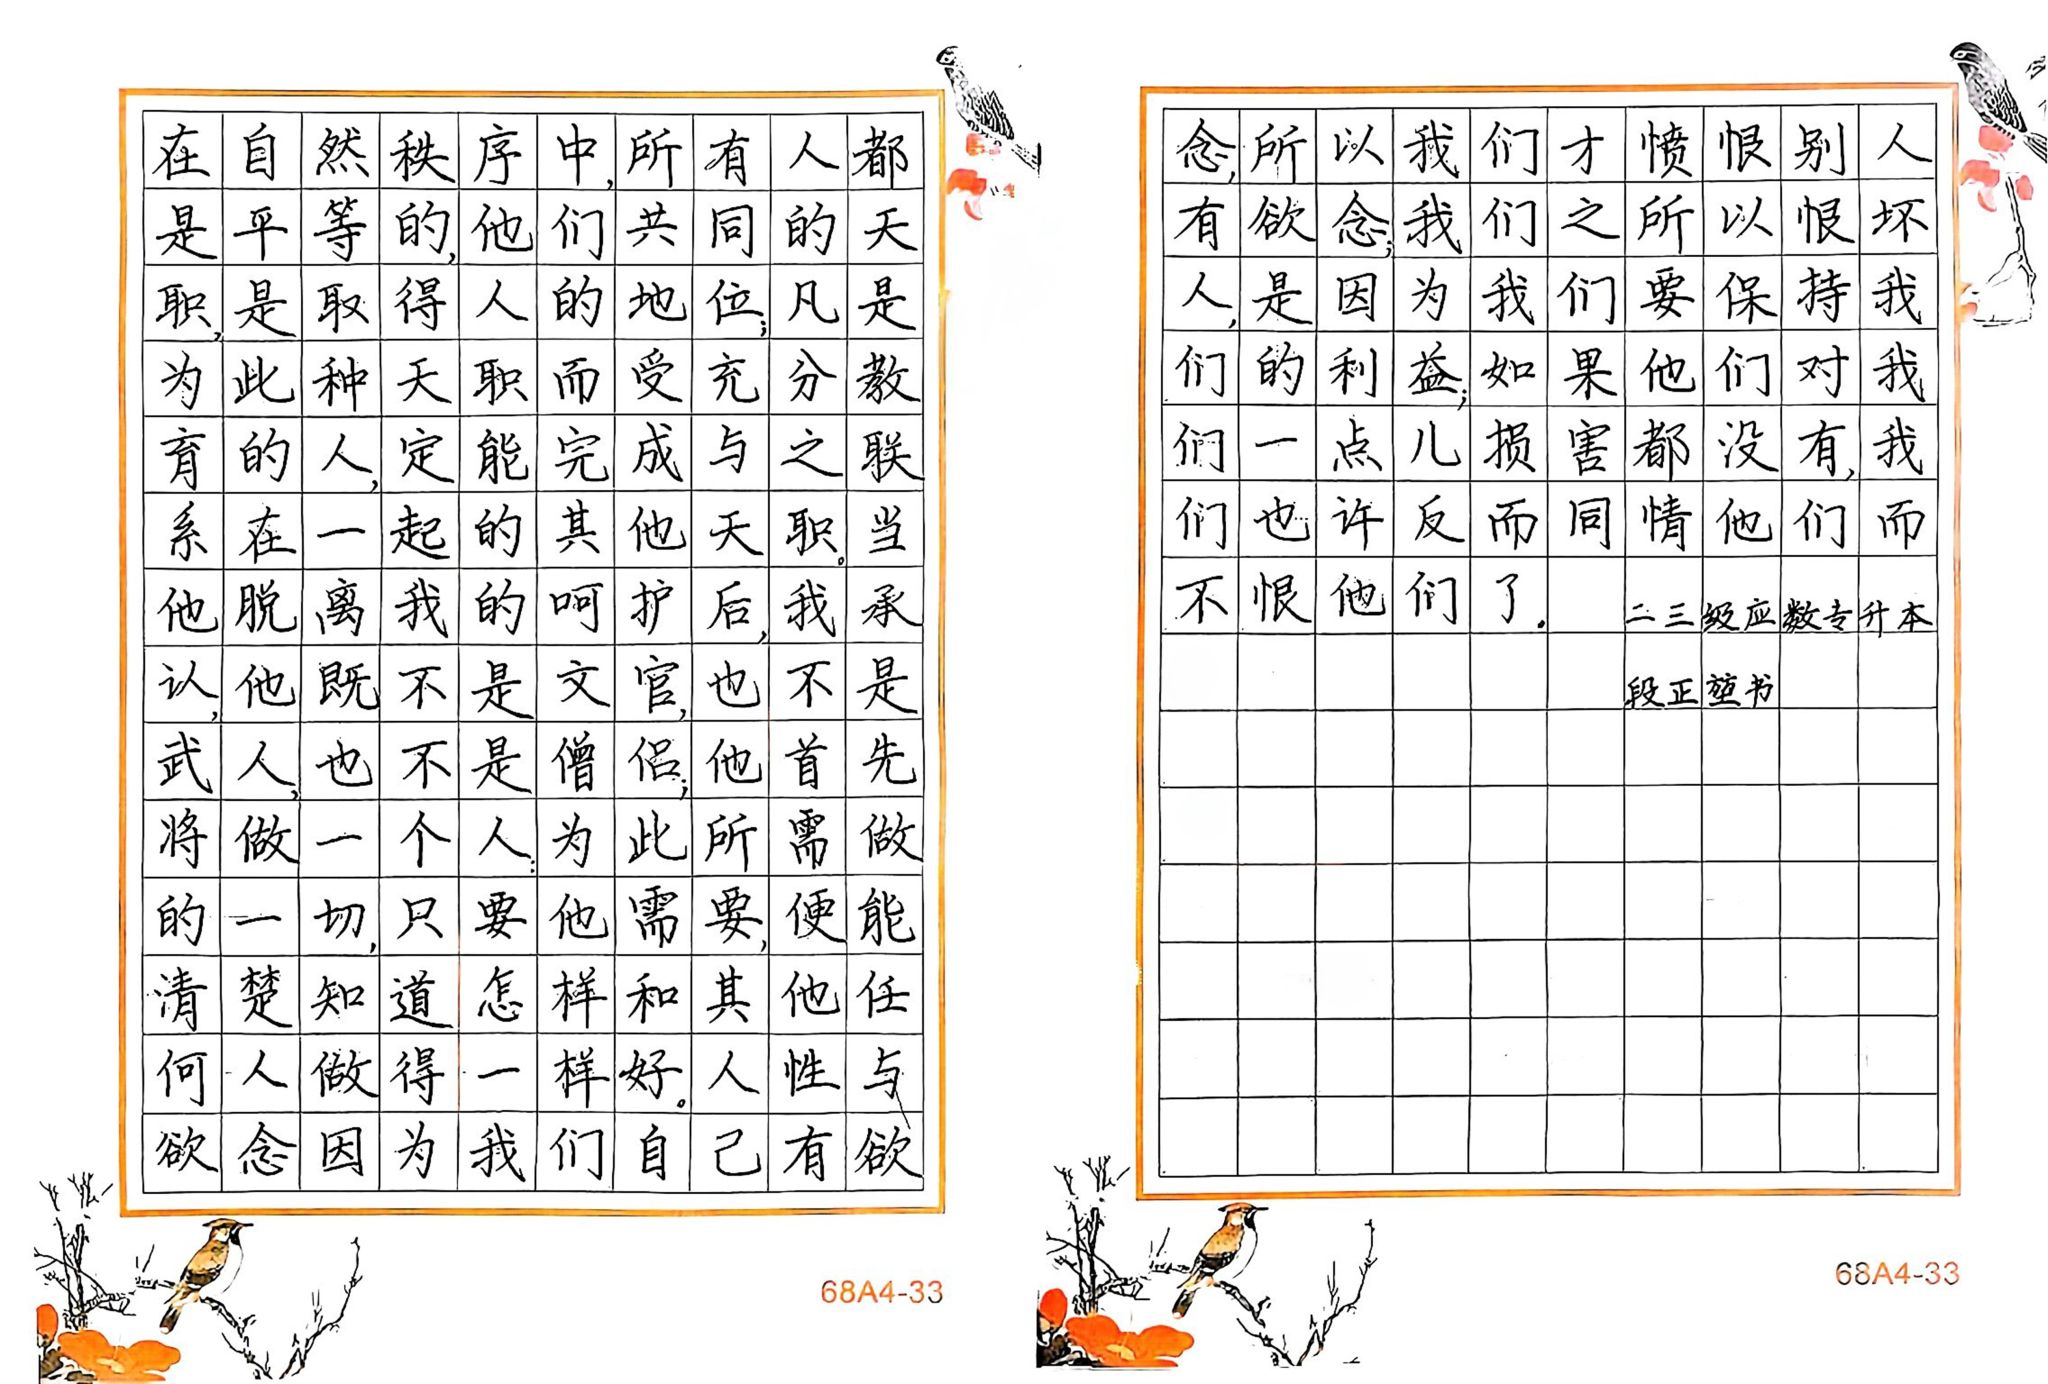 在自然秩序中,所有人都
是平等的,他们共同的天
职,是取得人的地位;凡是
为此种天职而受充分教
育的人,定能完成与之联
系在一起的其他天职。当
他脱离我的呵护后,我承
认,他既不是文官,也不是
武人,也不是僧侣;他首先
将做一个人:为此所需做
的一切,只要他需要,便能
清楚知道怎样和其他任
何人做得一样好。人性与
欲念因为我们自己有欲
68A4-33
念,所以我们才愤恨别人
有欲念;我们之所以恨坏
人,是因为我们要保持我
们的利益;如果他们对我
们一点儿损害都没有,我
们也许反而同情他们而
不恨他们了.
二三级应数专升本
段正堃书
68A4-33